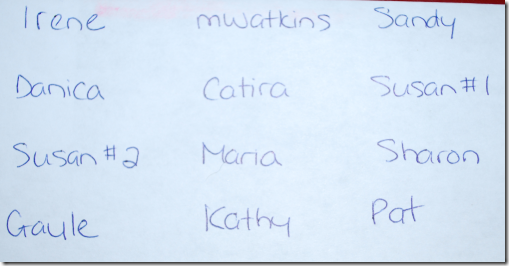 Irene mwatkins Sandy
Danica Catira Susan #1
Susan #2 Maria Sharon
Gayle Kathy Pat